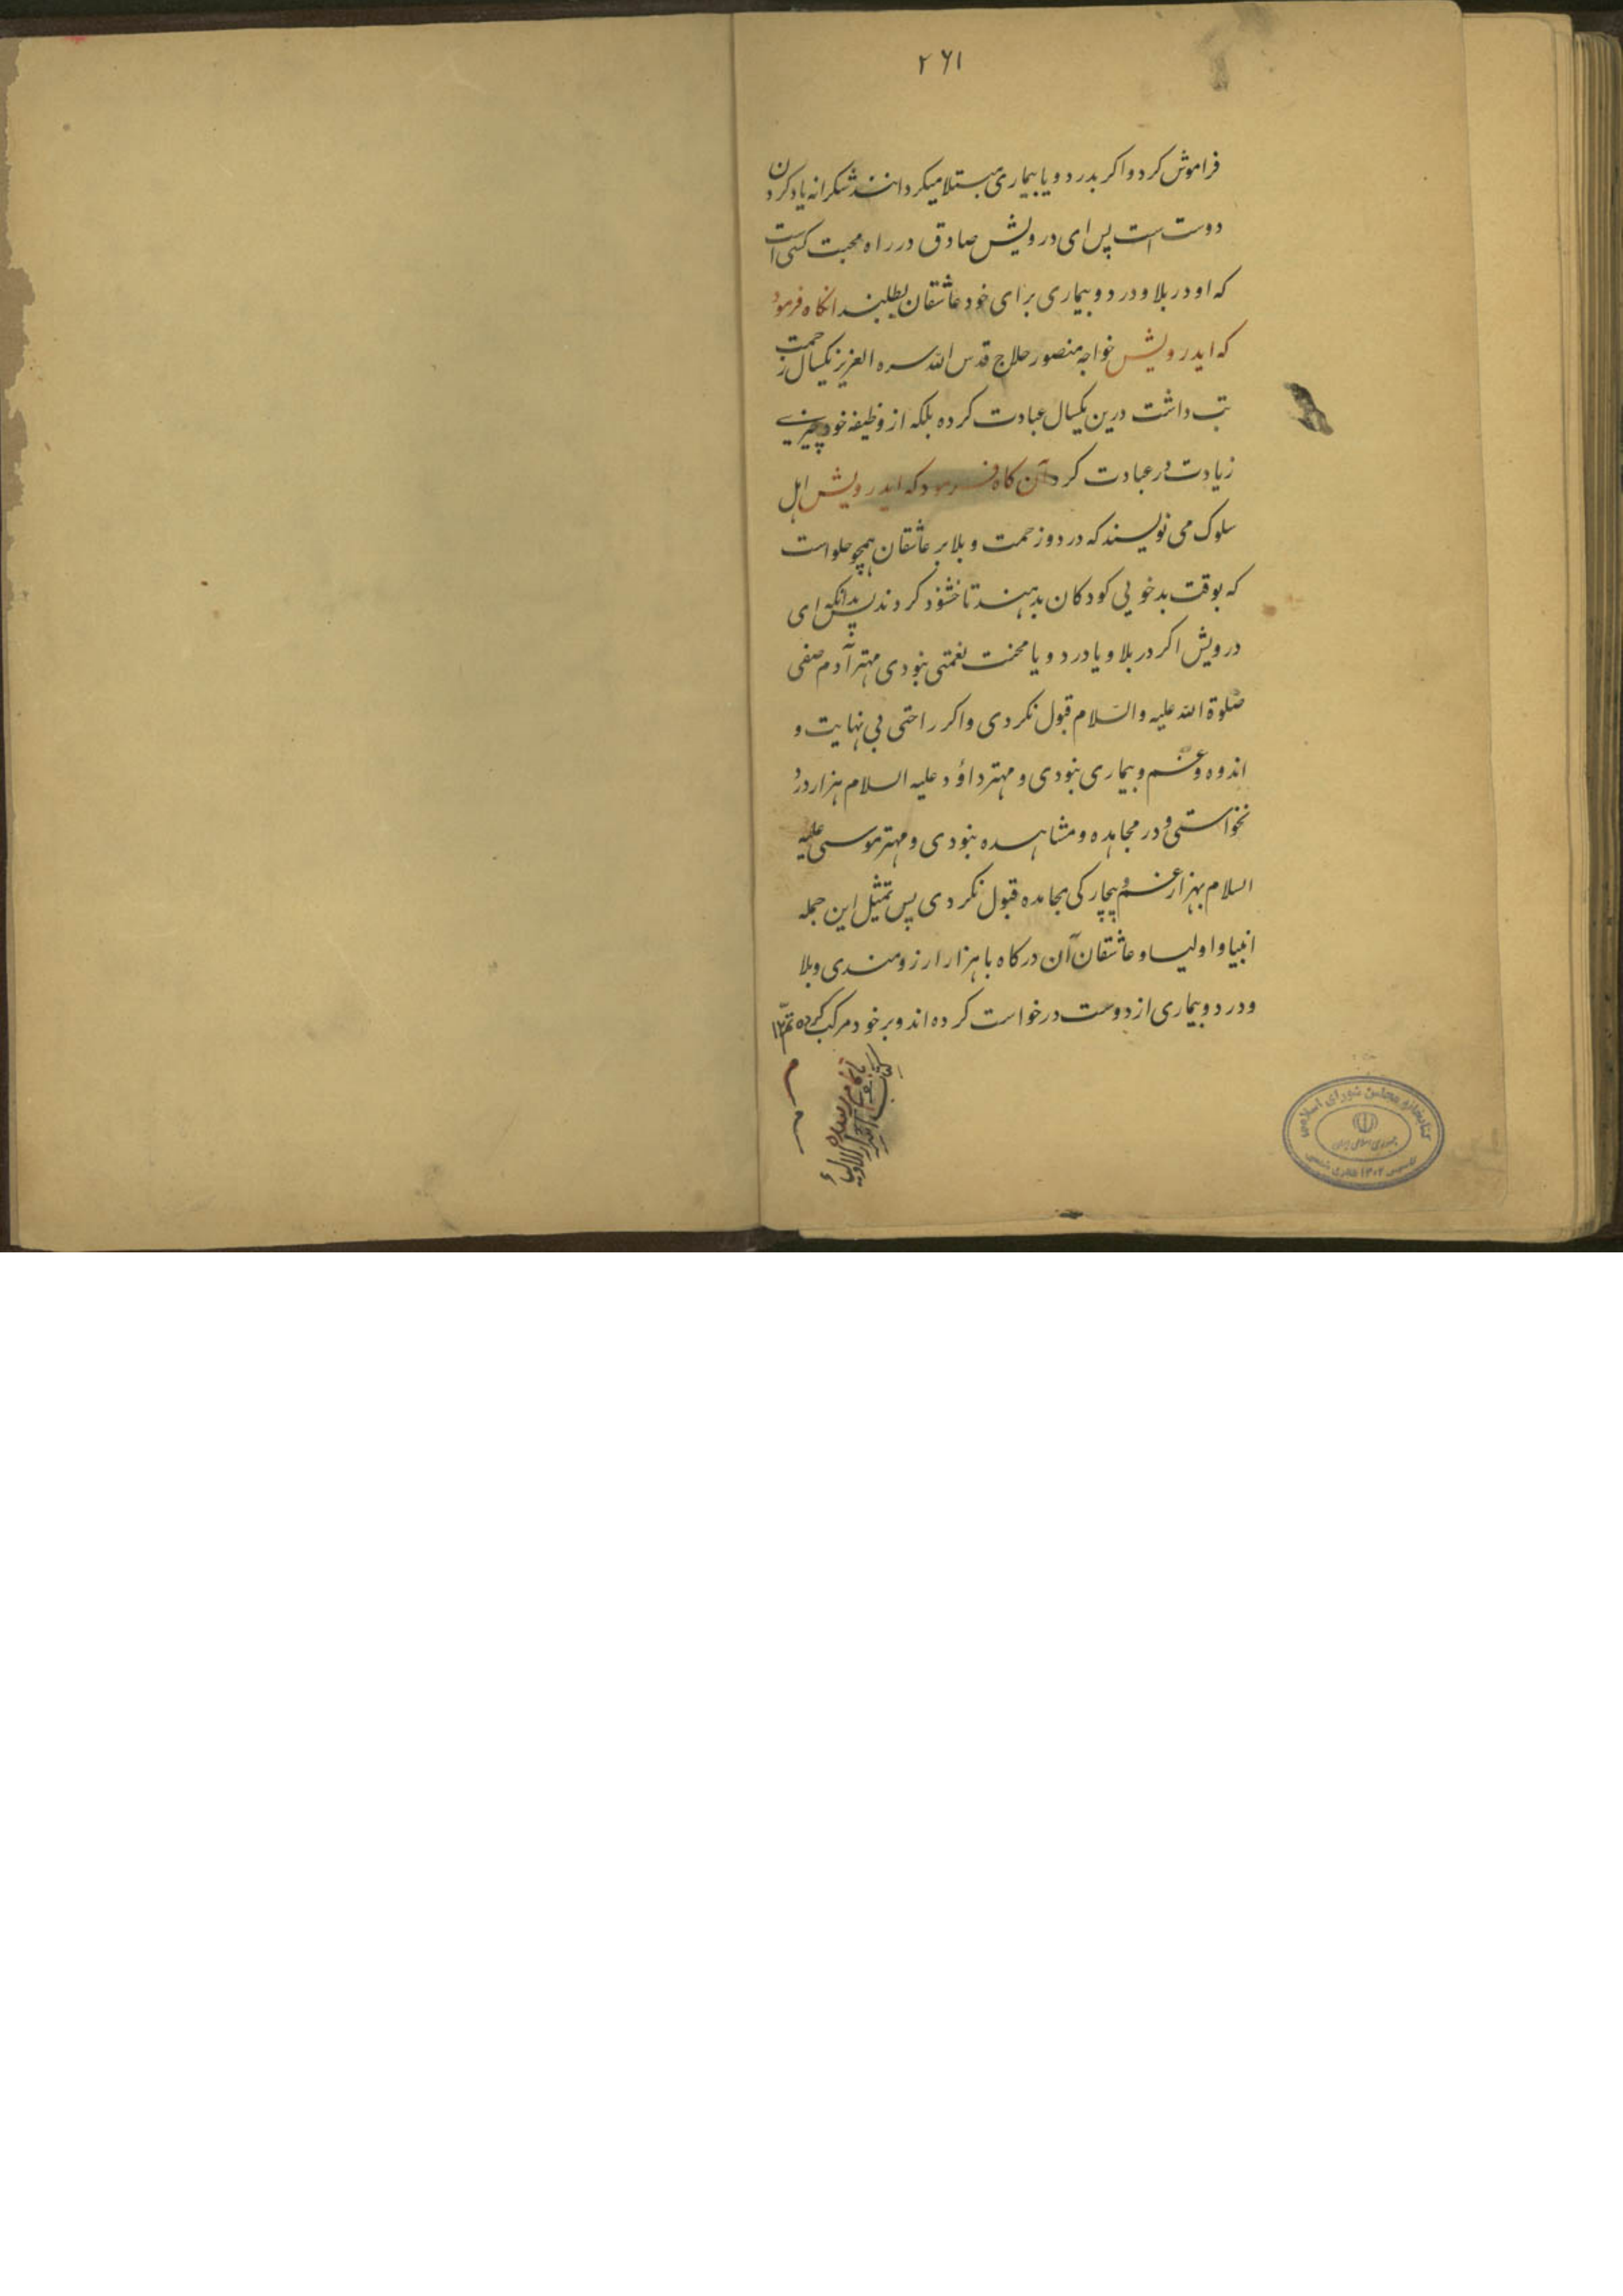 ۲۶۱
فراموش کرد واکر بدرد و یا بیماری مبتلا میکردانند شکرانه یاد کردن
دوست است پس ای درویش صادق در راه محبت کسی است
که او در بلا و درد و بیماری برای خود عاشقان بطلبند انکاه فرمود
که ایدرویش خواجه منصور حلاج قدس الله سره العزیز یکسال زحمت
تب داشت درین یکسال عبادت کرده بلکه از وظیفه خود چیزے
زیادت در عبادت کرد آن کاه فرمود که ایدرویش اهل
سلوک می نویسند که درد و زحمت و بلا بر عاشقان همچو حلوا است
که بوقت بدخویی کودکان بدهند تا خشنود کردند پس بدانکه ای
درویش اکر در بلا و یا درد و یا محنت نعمتی نبودی مهتر آدم صفی
صلوة الله علیه والسلام قبول نکردی واکر راحتی بی نهایت و
اندوه و غم و بیماری نبودی و مهتر داؤد علیه السلام هزار درد
نخواستی و در مجاهده و مشاهده نبودی و مهتر موسی علیه
السلام بهزار غم و بیچارکی مجاهده قبول نکردی پس تمثیل این جمله
انبیا و اولیا و عاشقان آن درکاه با هزار ارزومندی و بلا
و درد و بیماری از دوست درخواست کرده اند و بر خود مرکب کرده تم ۱۲
کتاب
اسرار الاولیاء
کتابخانه مجلس شورای اسلامی
جمهوری اسلامی ایران
تاسیس ۱۳۰۲ هجری شمسی